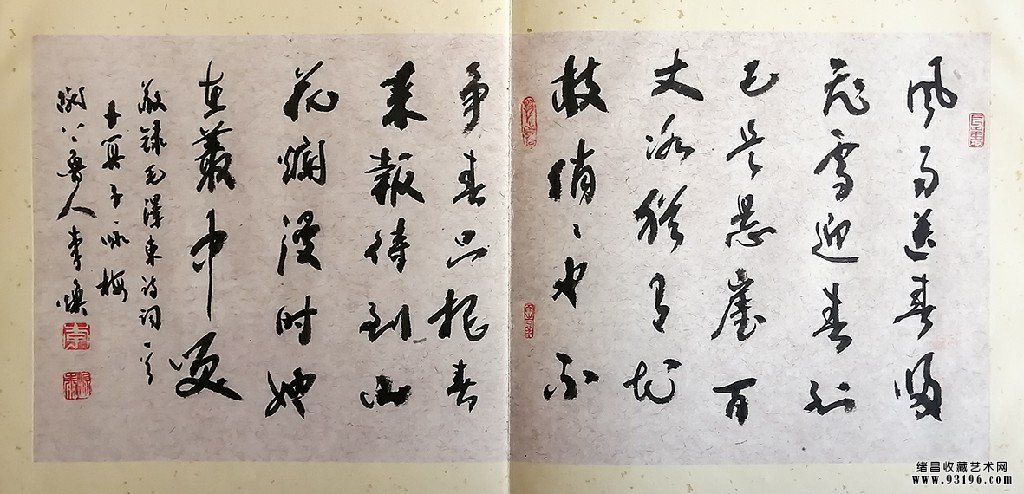 風雨送春归
飛雪迎春到
已是悬崖百
丈冰猶有花
枝俏〻也不
争春只把春
来報待到山
花爛漫时她
在叢中笑
敬録毛澤東诗词一首
卜算子咏梅
魯人李焕
绪昌收藏艺术网
www.93196.com